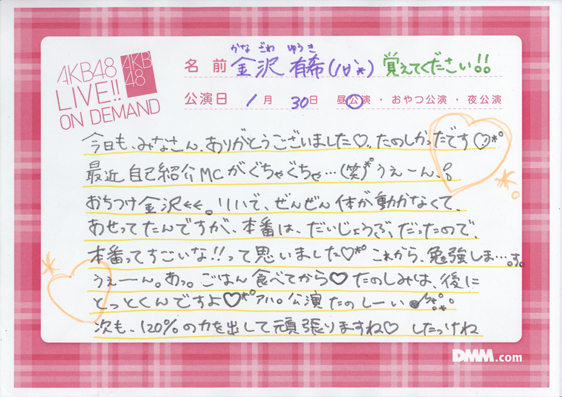 AKB48
LIVE!!
ON DEMAND
AKB
48
かな ざわ ゆうき
名前 金沢 有希(ノ∀`*) 覚えてください!!
公演日 1月 30日 昼公演・おやつ公演・夜公演
今日も、みなさん、ありがとうございました♡。たのしかったです♡*°
最近 自己紹介MCがぐちゃぐちゃ…(笑)*°うぇーん、
おちつけ金沢<<。リハで、ぜんぜん体が動かなくて、
あせってたんですが、本番は、だいじょうぶ、だったので、
本番ってすごいな!!って思いました♡*° これから、勉強しま…。す。
うぇーん。あっ。ごはん食べてから♡ たのしみは、後に
とっとくんですよ♡*° アハ。公演たのしーい♪
次も、120%の力を出して頑張りますね♡ したっけね
DMM.com